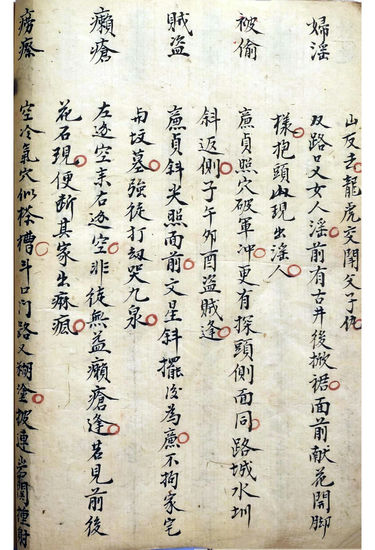 山反去龍虎交鬧父子仇
婦淫
双路口又女人淫前有古井後掀裙面前献花開脚
樣抱頭山現出淫人
被偷
廉貞照穴破軍冲更有探頭側面同路城水圳
斜返側子午卯酉盜賊逢
賊盜
廉貞斜尖照面前文星斜擺後為廉不拘家宅
与坟墓強徒打刼哭九泉
癩瘡
左边空来右边空非徒無益癩瘡逢若見前後
花石現便断其家出麻瘋
癆瘵
空冷氣穴似棕槽斗口门路又糊塗